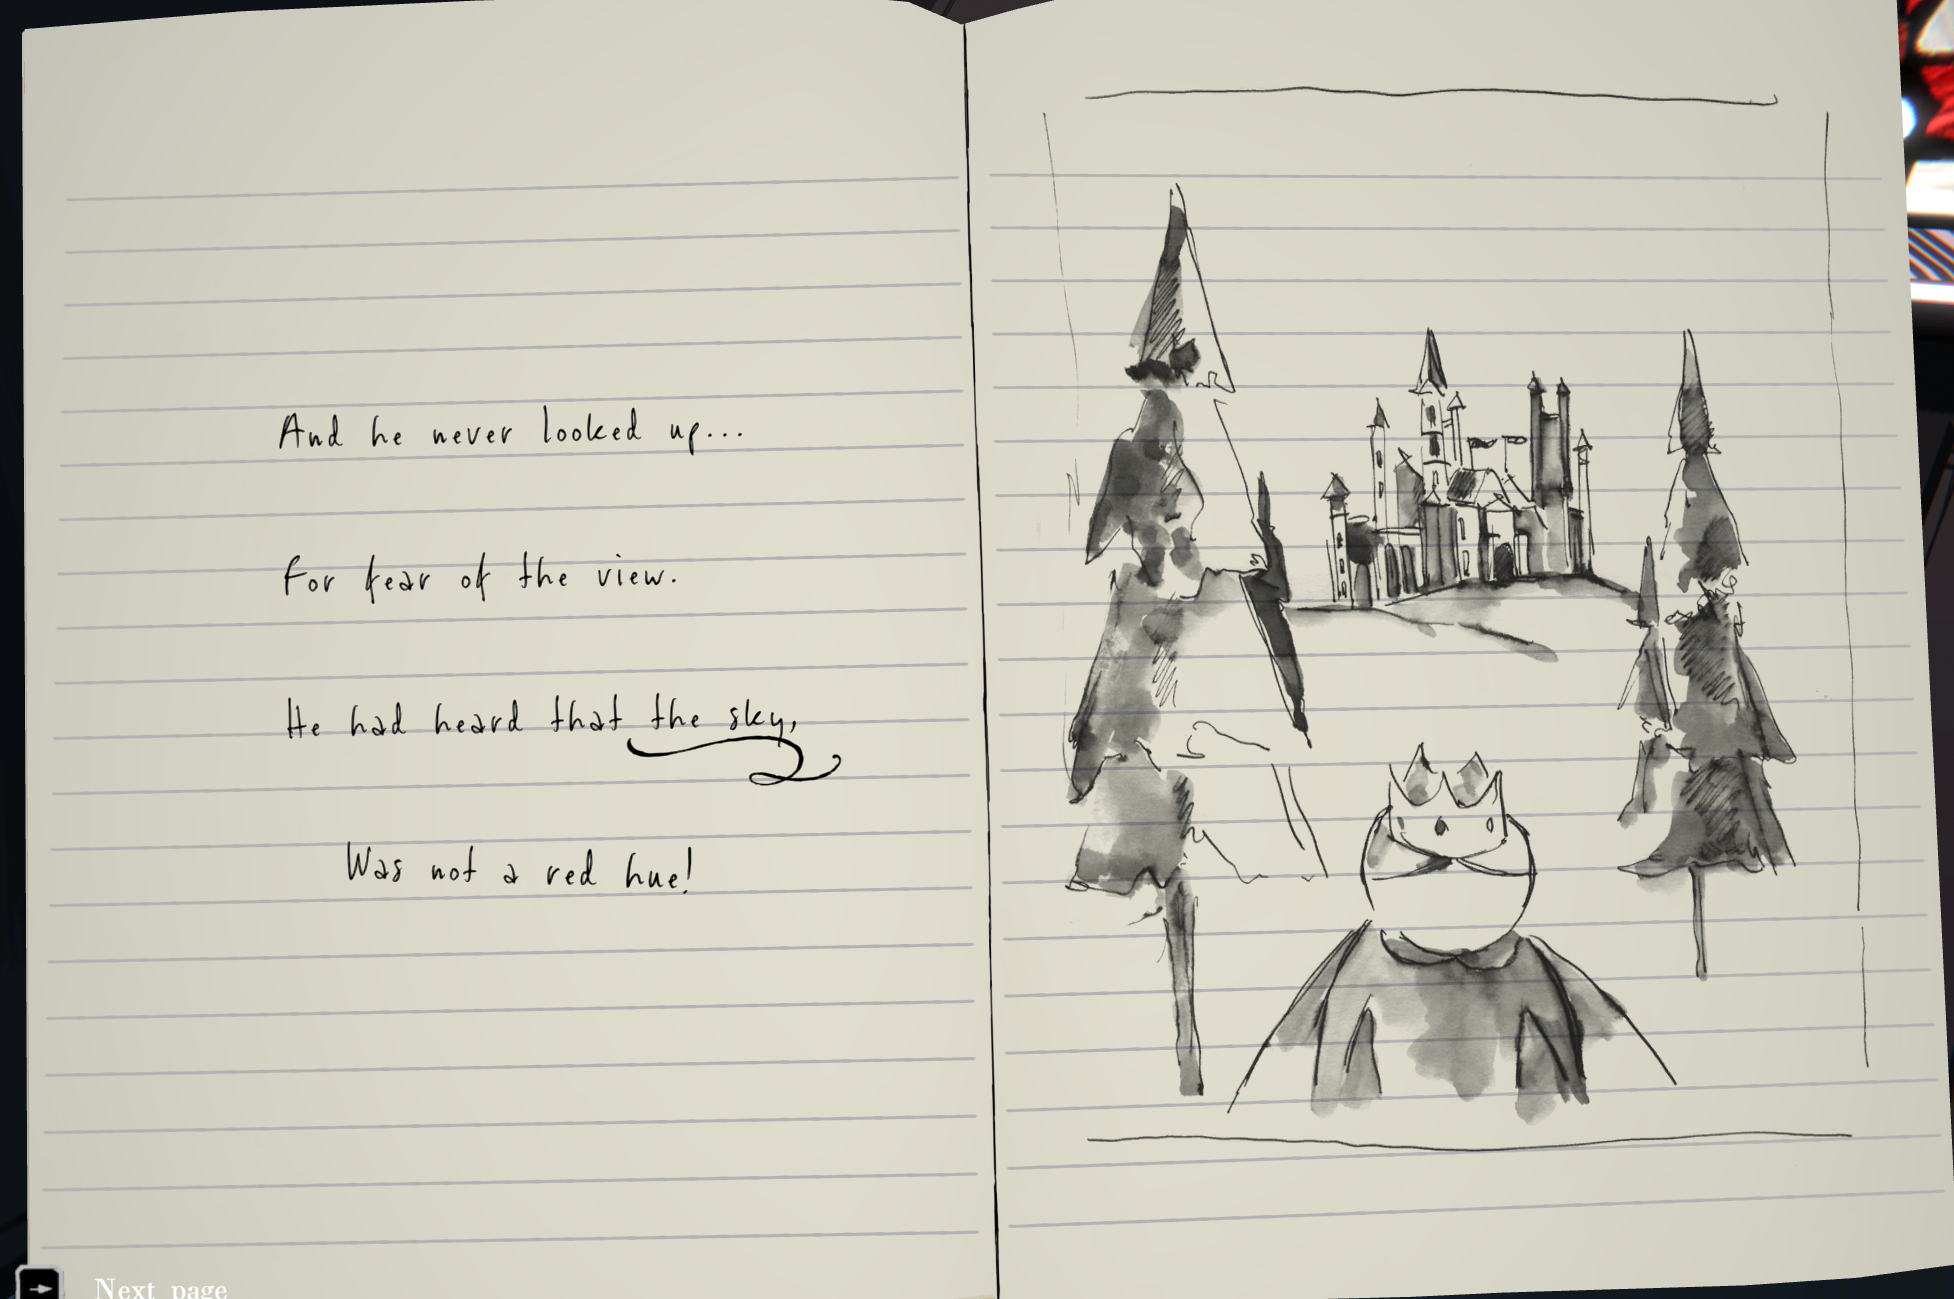 And he never looked up...
For fear of the view.
He had heard that the sky,
Was not a red hue!
Next page